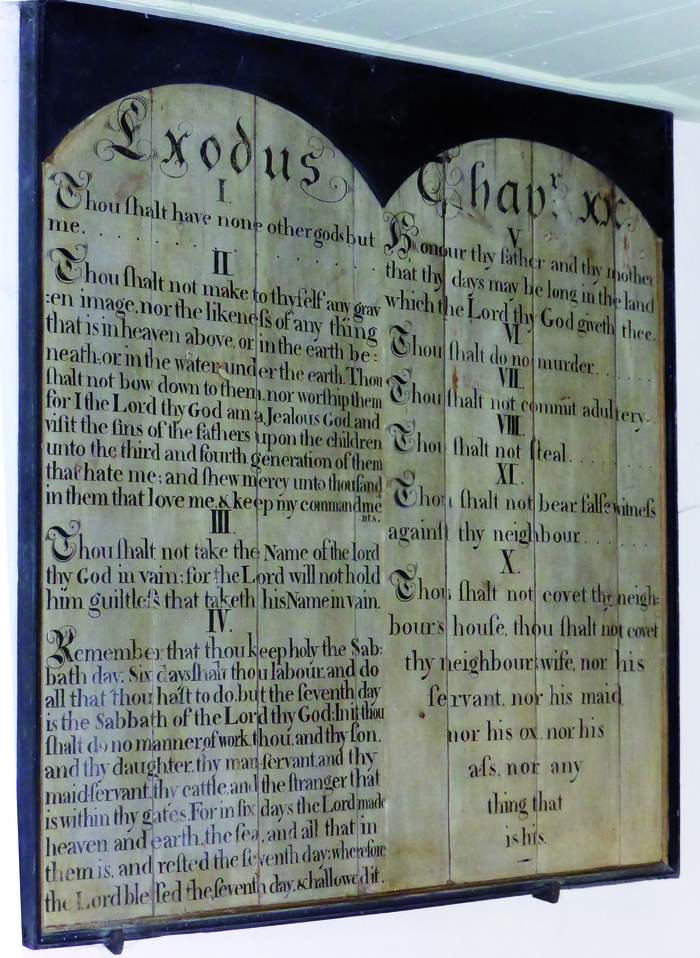 Exodus
I.
Thou ſhalt have none other gods but
me. . . . . . . . . . . .
II
Thou ſhalt not make to thyſelf any grav
:en image, nor the likeneſs of any thing
that is in heaven above, or in the earth be:
neath: or in the water under the earth. Thou
ſhalt not bow down to them, nor worſhip them
for I the Lord thy God am a Jealous God, and
viſit the ſins of the fathers upon the children
unto the third and fourth generation of them
that hate me; and ſhew mercy unto thouſand
in them that love me, & keep my commandme
nts.
III
Thou ſhalt not take the Name of the lord
thy God in vain: for the Lord will not hold
him guiltleſs that taketh his Name in vain.
IV.
Remember that thou keep holy the Sab:
bath day. Six days ſhalt thou labour, and do
all that thou haſt to do, but the ſeventh day
is the Sabbath of the Lord thy God: In it thou
ſhalt do no manner of work, thou, and thy ſon,
and thy daughter, thy man ſervant, and thy
maid-ſervant, thy cattle, and the ſtranger that
is within thy gates. For in ſix days the Lord made
heaven and earth, the ſea, and all that in
them is, and reſted the ſeventh day; wherefore
the Lord bleſſed the ſeventh day, & hallowed it.
Chapr. XX.
V
Honour thy father and thy mother
that thy days may be long in the land
which the Lord thy God giveth thee.
VI
Thou ſhalt do no murder. . . . . .
VII.
Thou ſhalt not commit adultery.
VIII.
Thou ſhalt not ſteal. . . . . .
XI.
Thou ſhalt not bear falſe witneſs
againſt thy neighbour. . . . . .
X.
Thou ſhalt not covet thy neigh:
bour's houſe, thou ſhalt not covet
thy neighbours wife, nor his
ſervant, nor his maid
nor his ox, nor his
aſs, nor any
thing that
is his.